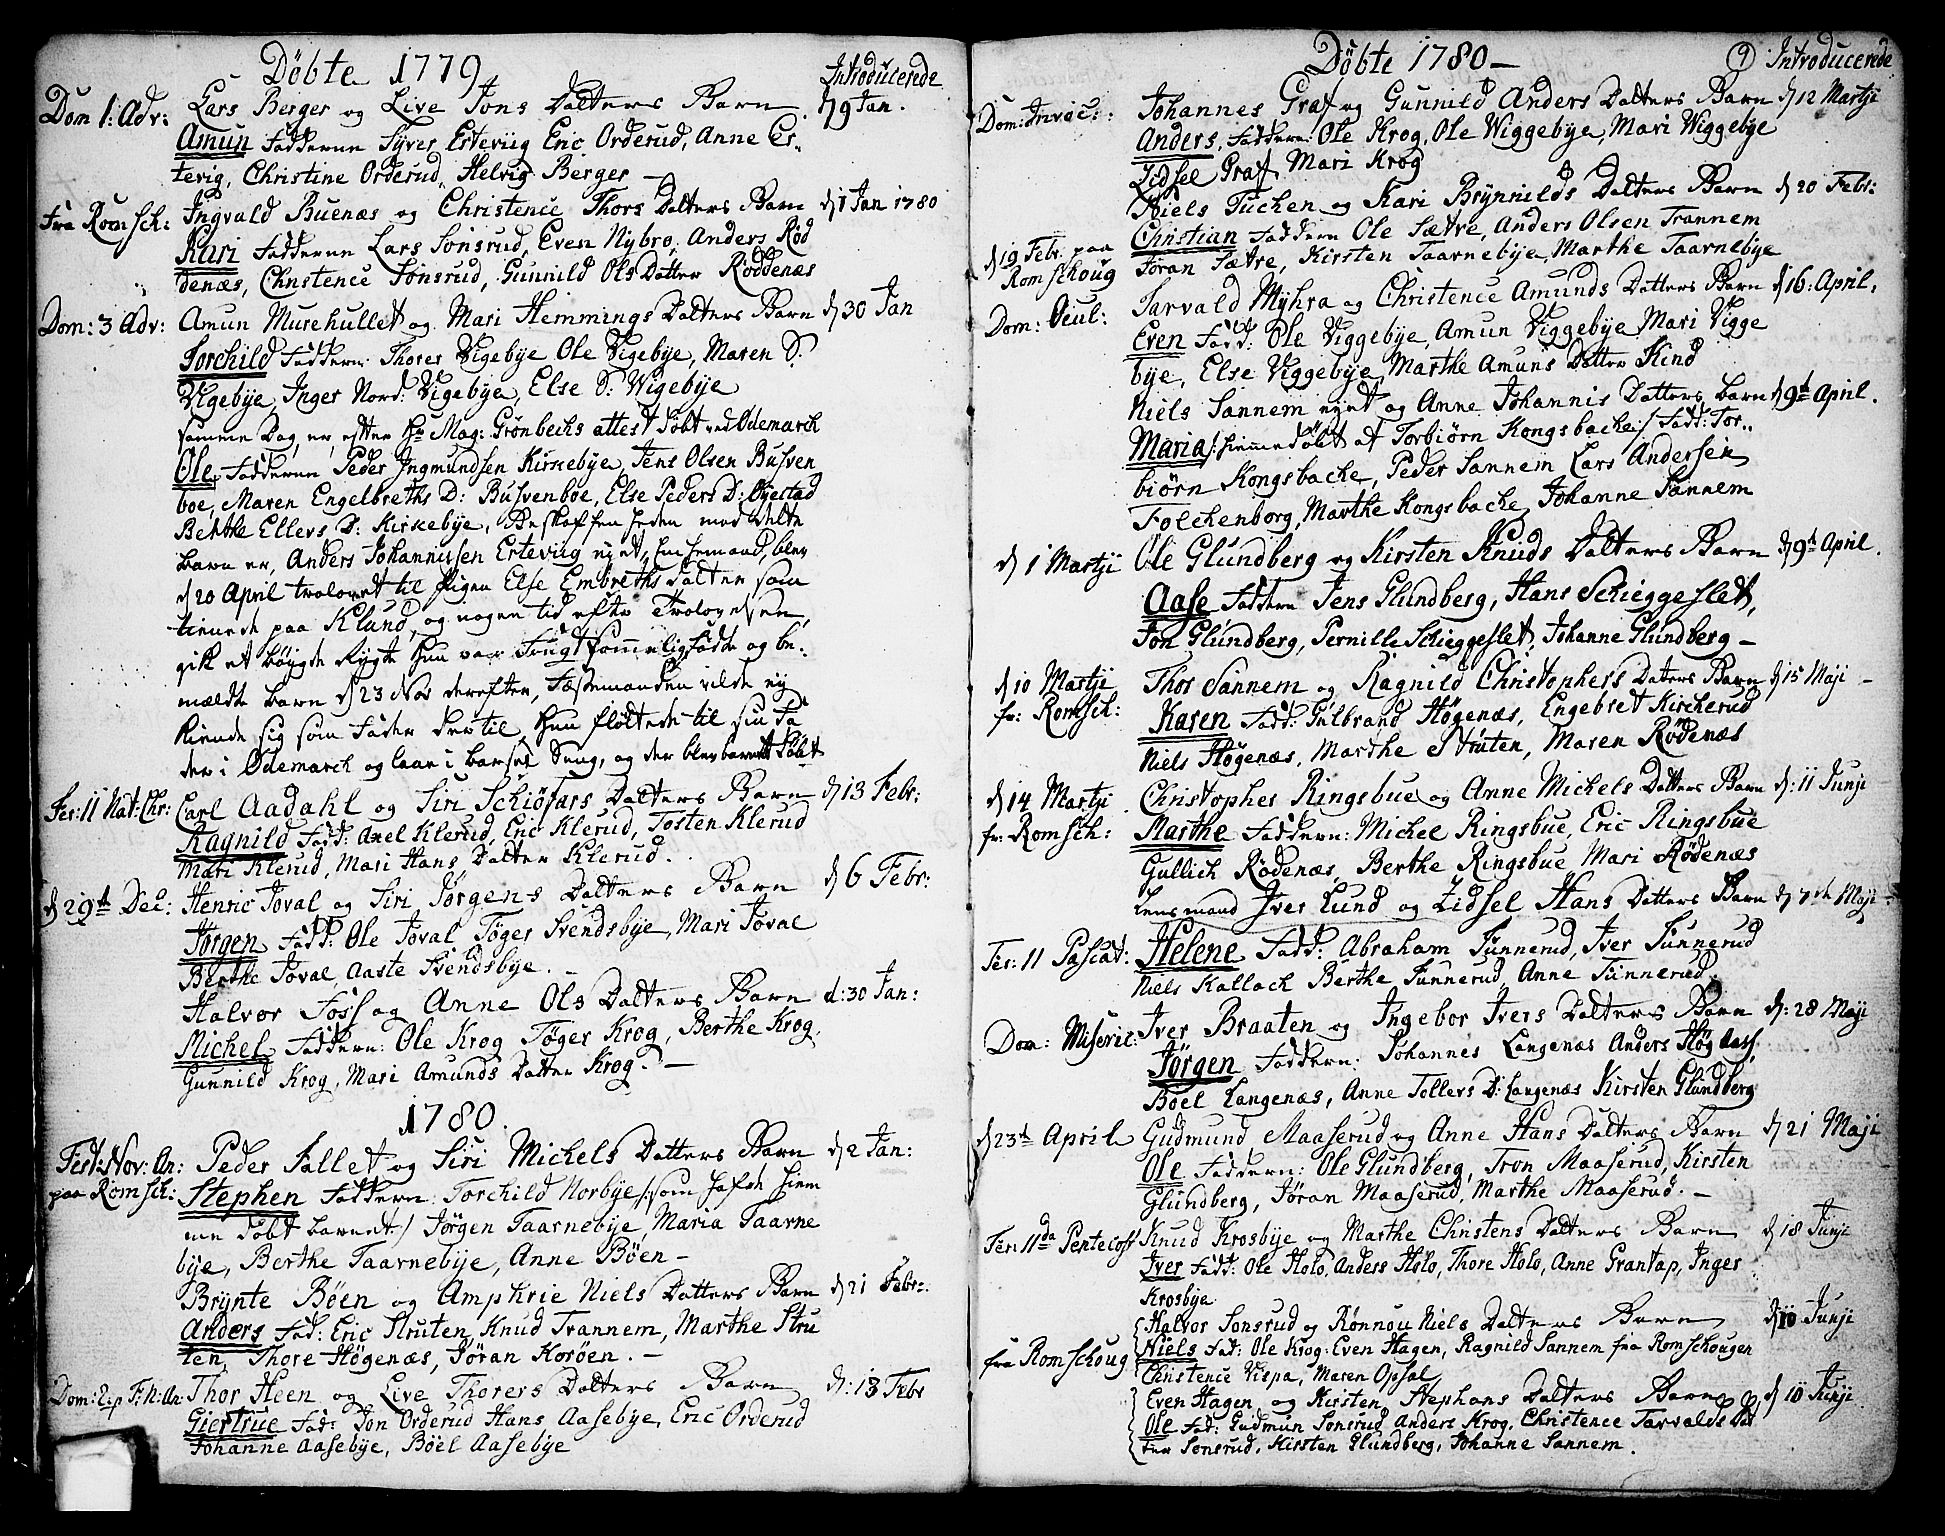 Döbte 1779
Introducerede
Dom 1: Adv: Lars Berger og Live Jons Datters Barn d 9 Jan.
Amun Fadderne Syver Esteviig Eric Orderud, Anne Es-
tevig, Christine Orderud, Helvig Berger —
Fra Romsch: Ingvald Buenæs og Christence Thors Datters Barn d 1 Jan 1780
Kari Fadderne Lars Sonsrud, Even Nybro, Anders Röd
denæs, Christence Sonsrud, Gunnild Ols Datter Röddenæs
Dom: 3 Adv: Amun Murehullet og Mari Hemmings Datters Barn d 30 Jan
Torchild Faddern: Thorer Vigebÿe Ole Vigebÿe, Maren S:
Vigebÿe, Inger Nord: Vigebÿe, Else S: Wigebÿe
samme Dag, er, efter Hr Mag: Grönbechs attest döbt ved Ödemarch
Ole, Fadderne Peder Ingmundsen Kirkebÿe, Jens Olsen Busven
boe, Maren Engelbreths D: Busvenboe, Else Peders D: Öyestad
Berthe Ellevs D: Kirkebÿe, Beskaffenheden med dette
barn er, Anders Johannissen Esteviig
d 20 April trolovet til Pigen Else Embreths datter som
tienede paa Klund, og nogen tid efter Trolovelsen,
gik et Röygte hun var
mældte barn d 23 Nov derefter, Fæstemanden vilde ej
kiende sig som Fader dertil, hun flöttede til sin Fa
der i Ödemarch og laae i barsel Seng, og der blev barnet döbt
Fer: 11 Nat: Chr: Carl Aadahl og Siri Schiöfars Datters Barn d 13 Febr:
Ragnild Fadd: Axel Klerud, Eric Klerud, Tosten Klerud
Mari Klerud, Mari Hans Datter Klerud.
d 29de Dec: Henric Toval og Siri Jörgens Datters Barn d 6 Febr:
Jörgen Fadd: Ole Toval, Töger Svendsbÿe, Mari Toval
Berthe Toval, Aaste Svendsbÿe. —
Halvor Foss og Anne Ols Datters Barn d: 30 Jan:
Michel Faddern: Ole Krog Töger Krog, Berthe Krog,
Gunnild Krog, Mari Amunds Datter Krog. —
1780.
Fest: Nov: An: Peder Fallet og Siri Michels Datters Barn d 2 Jan:
paa Romsch: Stephen Faddern: Torchild Norbÿe /: som hafde hiem
me döbt barnet :/ Jörgen Taarnebÿe, Maria Taarne
bÿe, Berthe Taarnebÿe, Anne Böen —
Brÿnte Böen og Amphrie Niels Datters Barn d 21 Febr:
Anders Fad: Eric Struten, Knud Trannem, Marthe Stru
ten, Thore Högenæs, Jöran Koröen. —
Dom: 2 p F: N: An Thor Heen og Live Thorers Datters Barn d: 13 Febr
Giertrue Fad: Jon Orderud Hans Aasebÿe, Eric Orderud
Johanne Aasebÿe, Böel Aasebÿe
Döbte 1780 —
9 Introducerede
Dom: Invoc: Johannes Graf og Gunnild Anders Datters Barn d 12 Martji
Anders, Faddern Ole Krog, Ole Wiggebÿe, Mari Wiggebÿe
Zidsel Graf, Mari Krog
Niels Tuchen og Kari Brÿnnilds Datters Barn d 20 Febr:
d 19 Febr. paa Romschoug Christian Faddern Ole Sætre, Anders Olsen Trannem
Jöran Sætre, Kirsten Taarnebÿe, Marthe Taarnebÿe
Dom: Ocul: Tarvald Mÿhra og Christence Amunds Datters Barn d 16: April,
Even Fadd: Ole Viggebÿe, Amun Viggebÿe Mari Vigge
bÿe, Else Viggebÿe, Marthe Amuns Datter Kind
Niels Sannem og Anne Johannis Datters barn d 9de April.
Maria /: hiemedöbt af Torbiörn Kongsbache :/ Fadd: Tor-
biörn Kongsbache, Peder Sannem Lars Andersen
Folchenborg, Marthe Kongsbache, Johanne Sannem
d 1 Martji Ole Glundberg og Kirsten Knuds Datters Barn d 9de April.
Aase Faddern Jens Glundberg, Hans Schieggeslet,
Jon Glundberg, Pernille Schieggeslet, Johanne Glundberg —
d 10 Martji Thor Sannem og Ragnild Christophers Datters Barn d 15 Maji —
fr: Romsch: Karen Fadd: Gulbrand Högenæs, Engebret Kircherud
Niels Högenæs, Marthe Struten, Maren Rödenæs
d 14 Martji Christopher Ringsbue og Anne Michels Datters Barn d: 11 Junji
fr: Romsch: Marthe Faddern: Michel Ringsbue, Eric Ringsbue
Gullich Rödenæs, Berthe Ringsbue, Mari Rödenæs
Lensmand Iver Lund og Zidsel Hans Datters Barn d 7de Maji
Fer: 11 Pascat: Helene Fadd: Abraham Tunnerud, Iver Tunnerud
Niels Kallach Berthe Tunnerud, Anne Tunnerud.
Dom: Miseric: Iver Braaten og Ingebor Ivers Datters Barn d: 28 Maji
Jörgen Faddern: Johannes Langenæs Anders Hög Aass.
Böel Langenæs, Anne Tollers D: Langenæs Kirsten Glundberg
d 23de April Gudmund Maaserud og Anne Hans Datters Barn d 21 Maji
Ole Faddern: Ole Glundberg, Tron Maaserud, Kirsten
Glundberg, Jöran Maaserud, Marthe Maaserud. —
Fer: 11da Pentecost Knud Krosbÿe og Marthe Christens Datters Barn d 18 Junji
Iver Fadd: Ole Holo, Anders Holo, Thore Holo, Anne Grantap, Inger
Krosbÿe
Halvor Sonsrud og Rönnou Niels Datters Barn d 10 Junji
fra Romschoug Niels Fat: Ole Krog, Even Hagen, Ragnild Sannem fra Romschougen
Christence Vispa, Maren Opsal
Even Hagen, og Kirsten Stephans Datters Barn d 10 Junji
Ole Fad: Gudmun Sonsrud, Anders Krog, Christence Tarvalds Dat
ter Sonsrud, Kirsten Glundberg, Johanne Sannem.